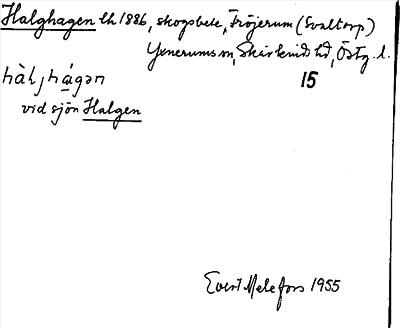 Halghagen lh 1886, skogsbete, Fröjerum (Svaltorp)
Yxnerums sn, Skärkinds hd, Östg. l.
hàl,hágən 15
vid sjön Halgen
Evert Melefors 1955